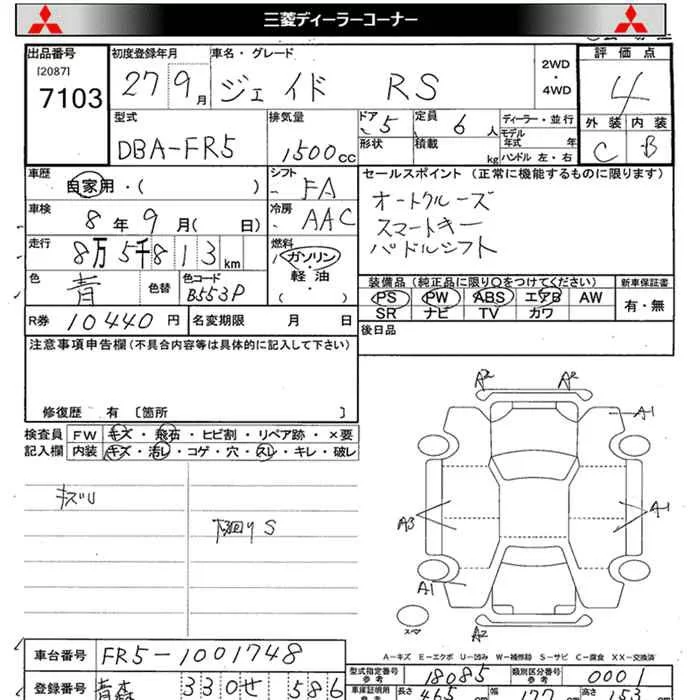 三菱ディーラーコーナー
出品番号 [2087] 7103
初度登録年月 27 9月
車名・グレード ジェイド RS
2WD・4WD
評価点 4
外装 C 内装 B
型式 DBA-FR5
排気量 1500cc
ドア 5 定員 6人
形状 積載 kg
ディーラー・並行
モデル年式 年
ハンドル 左・右
車歴 自家用・( )
シフト FA
車検 8年9月( 日)
冷房 AAC
走行 8万5千813km
燃料 ガソリン・軽油 ( )
色 青 色替 色コード B553P
R券 10440円 名変期限 月 日
セールスポイント (正常に機能するものに限ります)
オートクルーズ
スマートキー
パドルシフト
装備品 (純正品に限り○をつけてください) 新車保証書
PS PW ABS エアB AW 有・無
SR ナビ TV カワ
後日品
注意事項申告欄 (不具合内容等は具体的に記入して下さい)
修復歴 有 〔箇所 〕
検査員 FW キズ・飛石・ヒビ割・リペア跡・×要
記入欄 内装 キズ・汚レ・コゲ・穴・スレ・キレ・破レ
キズU
下回りS
A2 A2
A1
A3 A1
A1
スペア A2
A-キズ E-エクボ U-凹み W-補修跡 S-サビ C-腐食 XX-交換済
車台番号 FR5-1001748
型式指定番号 参考 18085 類別区分番号 参考 0001
登録番号 青森 330 せ 586
車庫証明用 参考 長さ 465 cm 幅 177 cm 高さ 153 cm